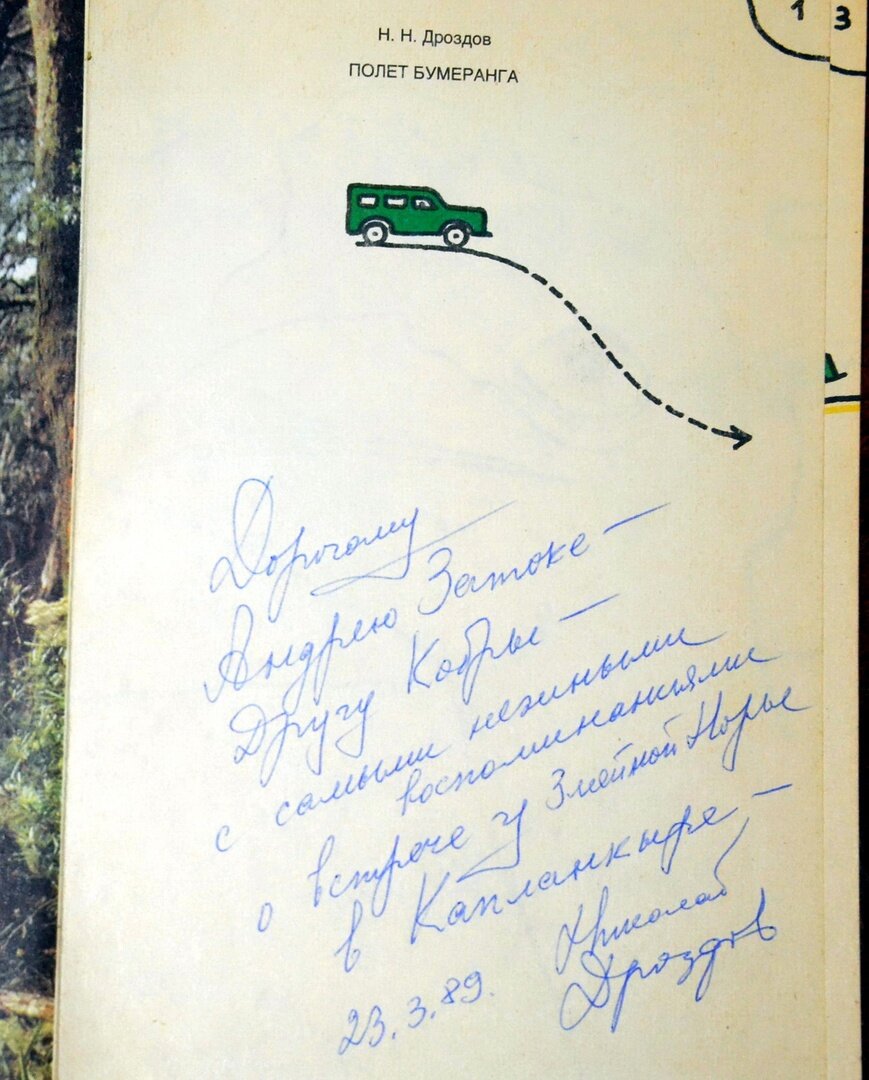 1
3
Н. Н. Дроздов
ПОЛЕТ БУМЕРАНГА
Дорогому
Андрею Затоке —
Другу Кобры —
с самыми нежными
воспоминаниями
о встрече у Змеиной Норы
в Капланкыре —
Николай
Дроздов
23.3.89.